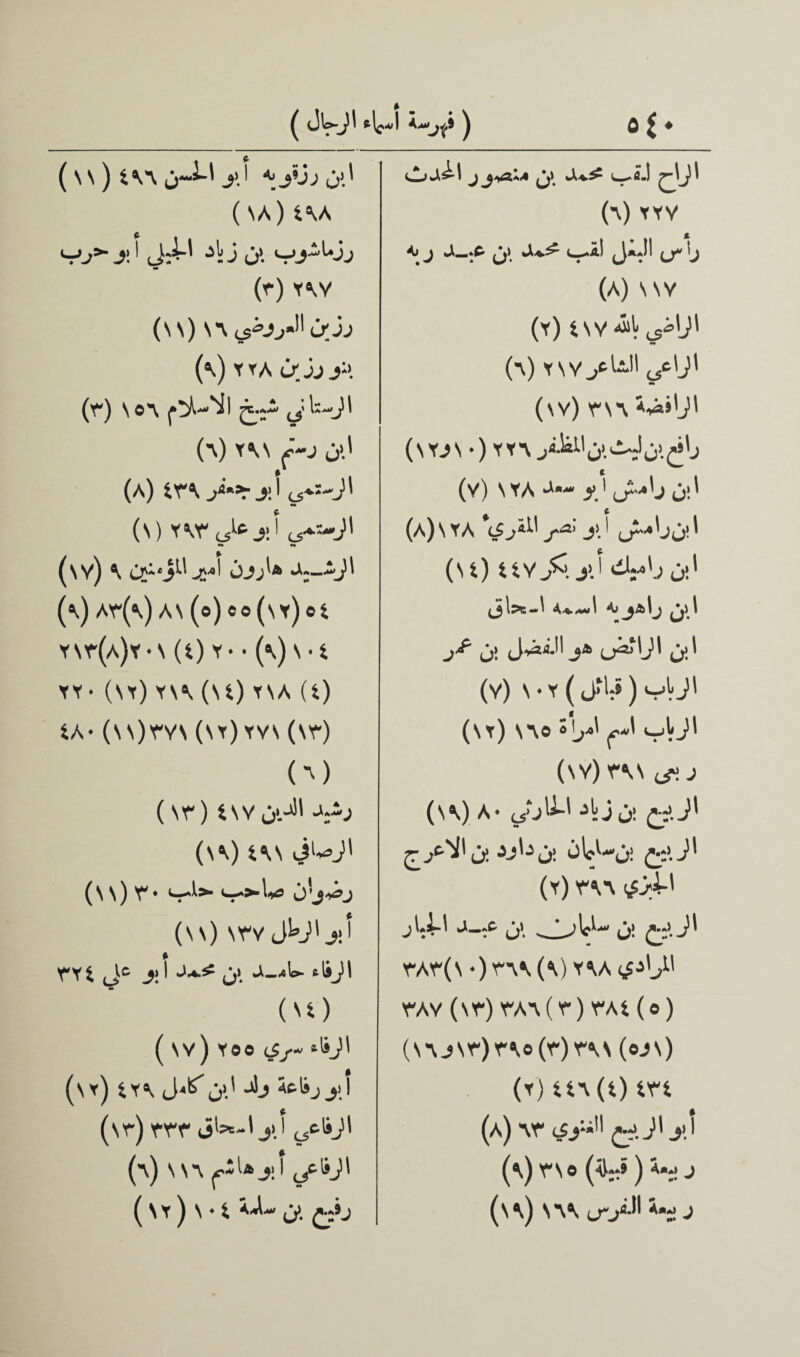 ٥٤٠ ( فهرست أسماء الرجال )
لقب محمد بن منصور
(٦) ٢٢٧
راس البغل لقب محمد بن عبد ربه
(٨) ١١٧
الراضي بالله ٤١٧ (٢)
الراعي الشاعر ٢١٧ (٦)
الرافضة ٣١٦ (١٧)
رافع بن الليث بن المظفر ٢٢٦ (١٠ و١٢)
ابن رامش أبو سعد ١٢٨ (٧)
ابن رامش أبو نصر المقرئ ١٢٨ (٨)
ابن رامك أبو بكر ٤٤٧ (١٤)
ابن راهويه اسمه اسحاق
ابن الرائض هو الفضل بن عمر
الرباب ١٠٢ (٧)
الرباب اسم امرأة ١٦٥ (١٢)
ربى ٣٩١ (١٧)
الربيع بن زياد الحارثي ٨٠ (١٩)
الربيع بن سليمان بن داود بن الأعرج
الجيزى ٣٩٦ (٢)
الربيع بن سليمان بن عبد الجبار
المرادى ٢٦٨ (٩) ٣٦٩ (١٠) ٣٨٣
(٥) ٣٨٤ (٣) ٣٨٦ (١٣) ٣٨٧
(١ و٥) ٣٩١ (٣) ٣٩٥ (١٣ و١٦)
٤٣٤ (٤) ٤٤٦ (٢)
أبو الربيع المقرى ٦٣ (٨)
ربيعة (قبيلة) ٣١٥ (٩)
ربيعة الفرس ١٦٩ (١٩)
ابن رزقويه أبو الحسن ٤٩٦ (١١)
٤٩٨ (١٨)
بن زياد الجيل أبو حرب
٢٩٧ (٣)
رزين العروضي ١٦ (١١)
بنو رزين ٢٢٨ (٩)
الرستاقي شيخ الاسلام ١٥٦ (٣)
ابن رستم ٢٩١ (٦)
الرستمي أبو جعفر ٤٣٩ (٨)
الرستمي أبو علي ٢٩٣ (١)
الرشيد هارون أمير المؤمنين ٩ (١٧)
٥٤ (١٢) ٥٥ (٥) ٨١ (٩) ٨٣ (٩)
١٠٤ (٩) ٢٠٠ (٤) ٢٠١ (٨) ٢١٣
(٤) ٢١٨ (١٤) ٢١٩ (١٢) ٢٢٠
(١٣) ٢٧١ (١٢) ٣٧١ (١١) ٤٨٠
(٦)
رشيد الدين ٤١٧ (١٣)
الرصافي ٤٩١ (١٩)
رضوان صاحب حلب ٣٠ (١١)
أبو الرطل ١٣٧ (١١)
الرفاء حامد بن محمد أبو علي ٣٢٤
(١٤)
الرفاء سري ٢٥٥ (١٧)
أبو رفاعة ابن كامل ٤٢٩ (١٢)
الرفاعي أبو اسحاق ٣٣٣ (١٣)
الرفاعي أبو هاشم ١١٦ (٦)
رفيع بن سلمة ١٠٤ (١٢)